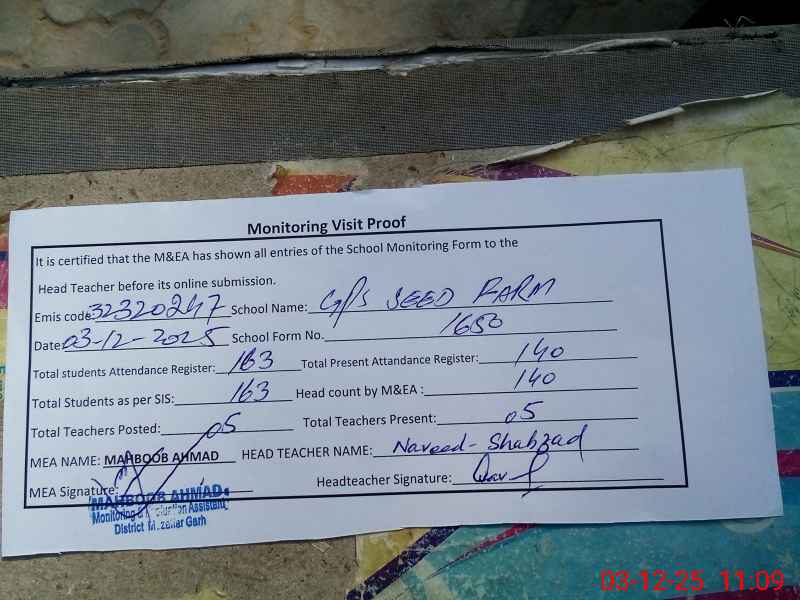 Monitoring Visit Proof
It is certified that the M&EA has shown all entries of the School Monitoring Form to the
Head Teacher before its online submission.
Emis code 32320247 School Name: G/P/S SEED FARM
Date: 03-12-2025 School Form No. 1650
Total students Attendance Register: 163 Total Present Attandance Register: 140
Total Students as per SIS: 163 Head count by M&EA : 140
Total Teachers Posted: 05 Total Teachers Present: 05
MEA NAME: MAHBOOB AHMAD HEAD TEACHER NAME: Naveed - Shahzad
MEA Signature: Headteacher Signature:
MAHBOOB AHMAD
Monitoring & Evaluation Assistant
District Muzaffar Garh
03-12-25 11:09